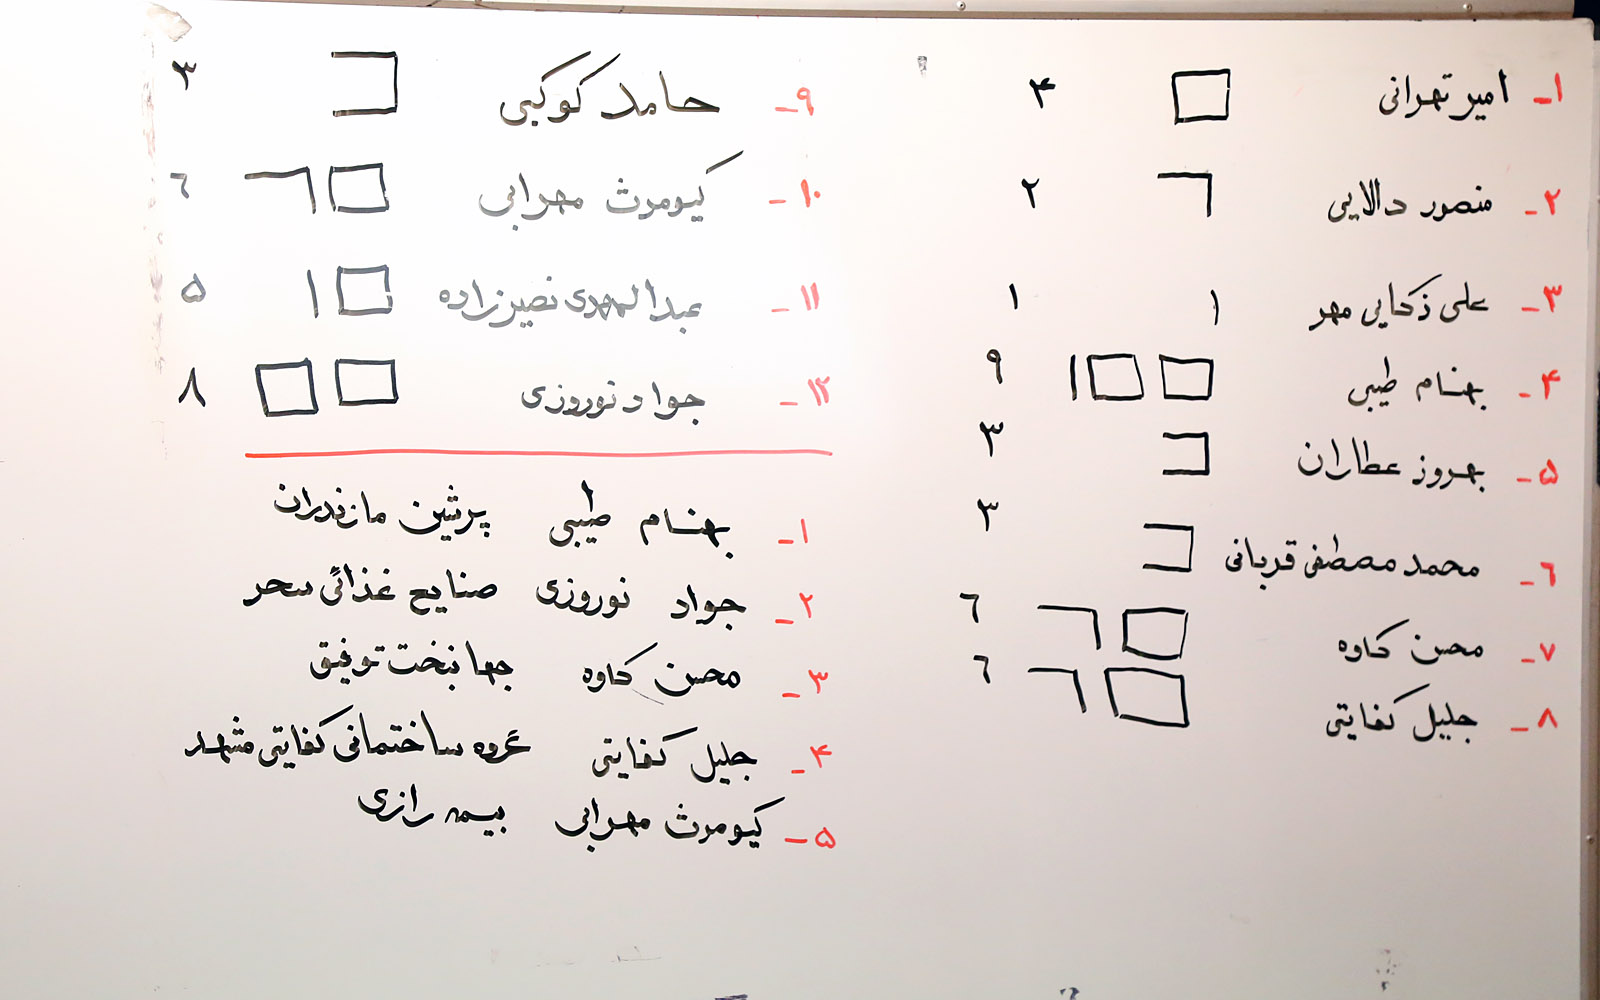 ۱- امیر تهرانی ۴
۲- منصور دالایی ۲
۳- علی ذکایی مهر ۱
۴- بهنام طیبی ۹
۵- بهروز عطاران ۳
۶- محمد مصطفی قربانی ۳
۷- محسن کاوه ۶
۸- جلیل کفایتی ۶
۹- حامد کوکبی ۳
۱۰- کیومرث مهرابی ۶
۱۱- عبدالمهدی نصیرزاده ۵
۱۲- جواد نوروزی ۸
۱- بهنام طیبی پرشین مازندران
۲- جواد نوروزی صنایع غذائی سحر
۳- محسن کاوه جهانبخت توفیق
۴- جلیل کفایتی گروه ساختمانی کفایتی مشهد
۵- کیومرث مهرابی بیمه رازی